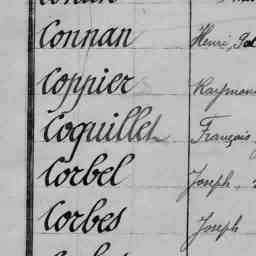 Connan Henri,
Coppier Raymond
Coquillet François,
Corbel Joseph,
Corbes Joseph